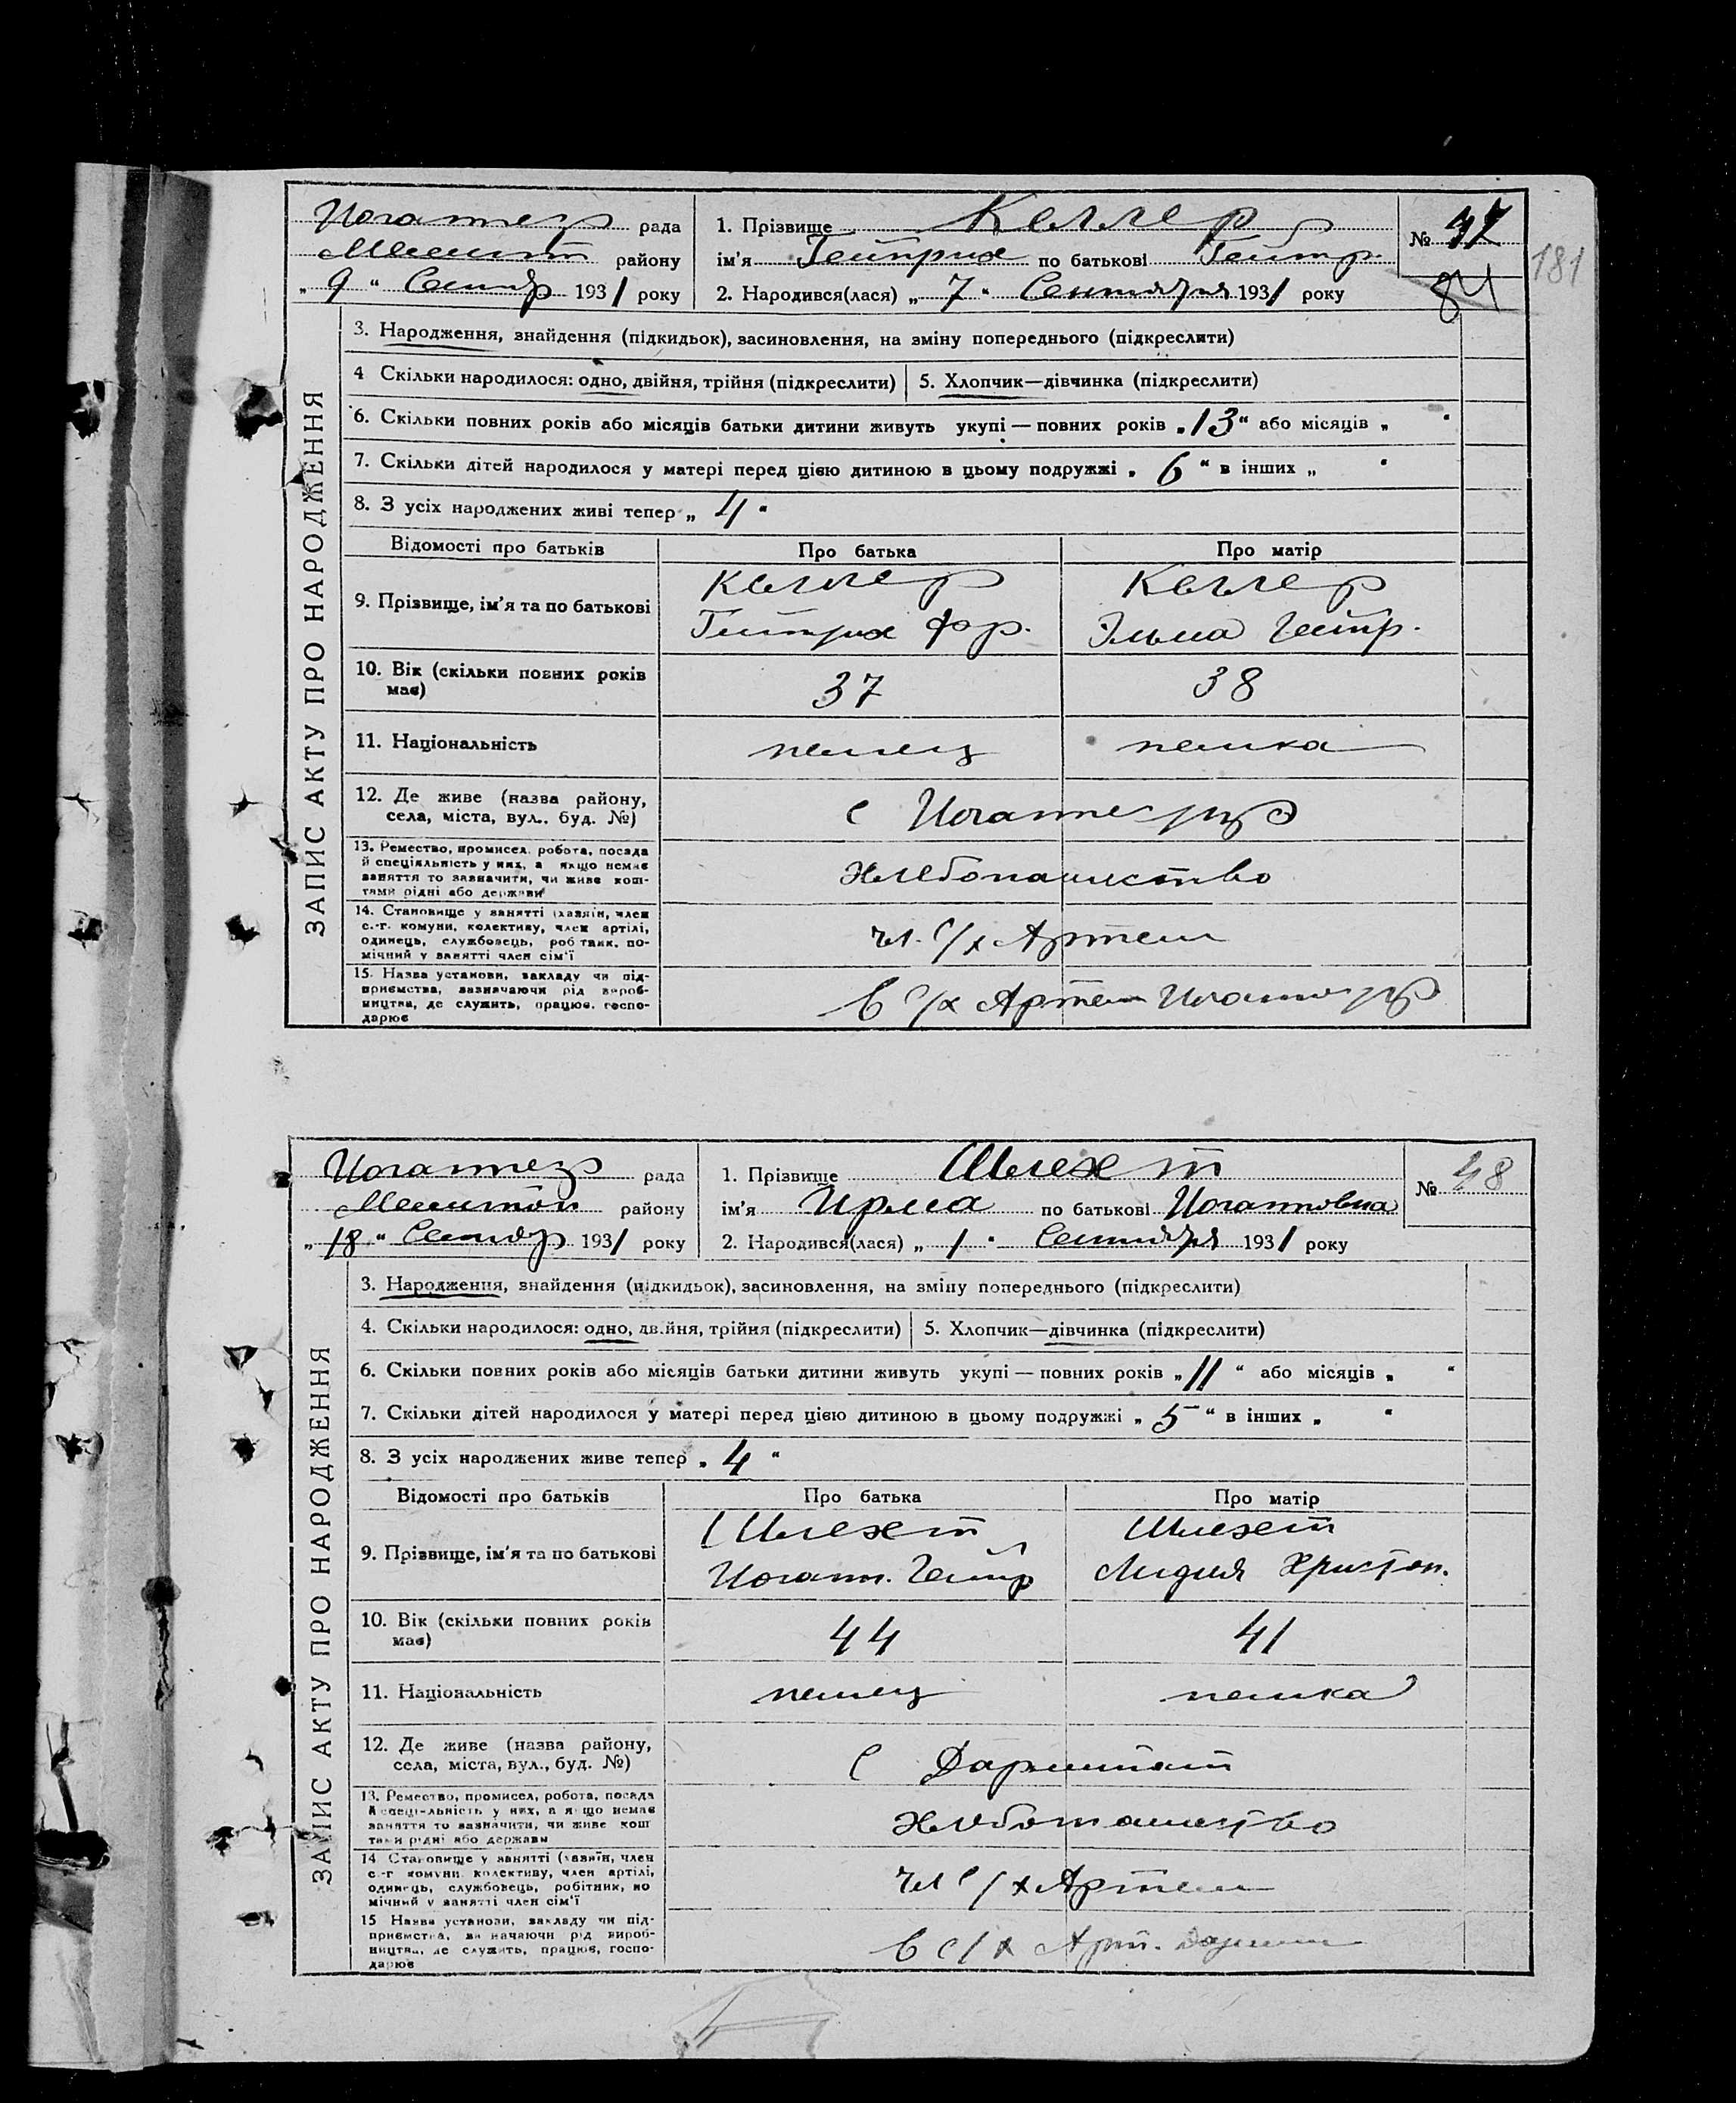 Иоганнезр рада
1. Прізвище Келлер
№ 47
181
Мелит району
ім'я Гейнрих по батькові Гейнр.
84
„ 9 “ Сентбр 1931 року
2. Народився(лася) „ 7 “ Сентября 1931 року
ЗАПИС АКТУ ПРО НАРОДЖЕННЯ
3. Народження, знайдення (підкидьок), засиновлення, на зміну попереднього (підкреслити)
4 Скільки народилося: одно, двійня, трійня (підкреслити) 5. Хлопчик—дівчинка (підкреслити)
6. Скільки повних років або місяців батьки дитини живуть укупі — повних років „ 13 “ або місяців „ “
7. Скільки дітей народилося у матері перед цією дитиною в цьому подружжі „ 6 “ в інших „ “
8. З усіх народжених живі тепер „ 4 “
Відомості про батьків Про батька Про матір
9. Прізвище, ім'я та по батькові
Келлер Келлер
Гейнрих Фр. Эльма Гейнр.
10. Вік (скільки повних років має)
37 38
11. Національність немец немка
12. Де живе (назва району,
села, міста, вул., буд. №)
с
13. Ремество, промисел, робота, посада
й спеціяльність у них, а якщо немає
заняття то зазначити, чи живе кош-
тами рідні або держави
хлебопашество
14. Становище у занятті (хазяїн, член
с.-г. комуни, колективу, член артілі,
одинець, службовець, робітник, по-
мічний у занятті член сім'ї
чл. с/х Артели
15. Назва установи, закладу чи під-
приємства, зазначаючи рід вироб-
ництва, де служить, працює, госпо-
дарює
в с/х Артели
Иоганнезр рада
1. Прізвище Шлехт
№ 48
району
ім'я Ирма по батькові Иоганновна
„ 18 “ Сентбр 1931 року
2. Народився(лася) „ 1 “ Сентября 1931 року
ЗАПИС АКТУ ПРО НАРОДЖЕННЯ
3. Народження, знайдення (підкидьок), засиновлення, на зміну попереднього (підкреслити)
4. Скільки народилося: одно, двійня, трійня (підкреслити) 5. Хлопчик—дівчинка (підкреслити)
6. Скільки повних років або місяців батьки дитини живуть укупі — повних років „ 11 “ або місяців „ “
7. Скільки дітей народилося у матері перед цією дитиною в цьому подружжі „ 5 “ в інших „ “
8. З усіх народжених живе тепер „ 4 “
Відомості про батьків Про батька Про матір
9. Прізвище, ім'я та по батькові
Шлехт Шлехт
Иоганн. Гейнр Лидия Христоп.
10. Вік (скільки повних років має)
44 41
11. Національність немец немка
12. Де живе (назва району,
села, міста, вул., буд. №)
с Дармштат
13. Ремество, промисел, робота, посада
й спеціяльність у них, а якщо немає
заняття то зазначити, чи живе кош
тами рідні або держави
хлебопашество
14 Становище у занятті (хазяїн, член
с-г комуни, колективу, член артілі,
одинець, службовець, робітник, по
мічний у занятті член сім'ї
чл с/х Артели
15 Назва установи, закладу чи під-
приємства, зазначаючи рід вироб-
ництва, де служить, працює, госпо-
дарює
в с/х Арт. Дармш